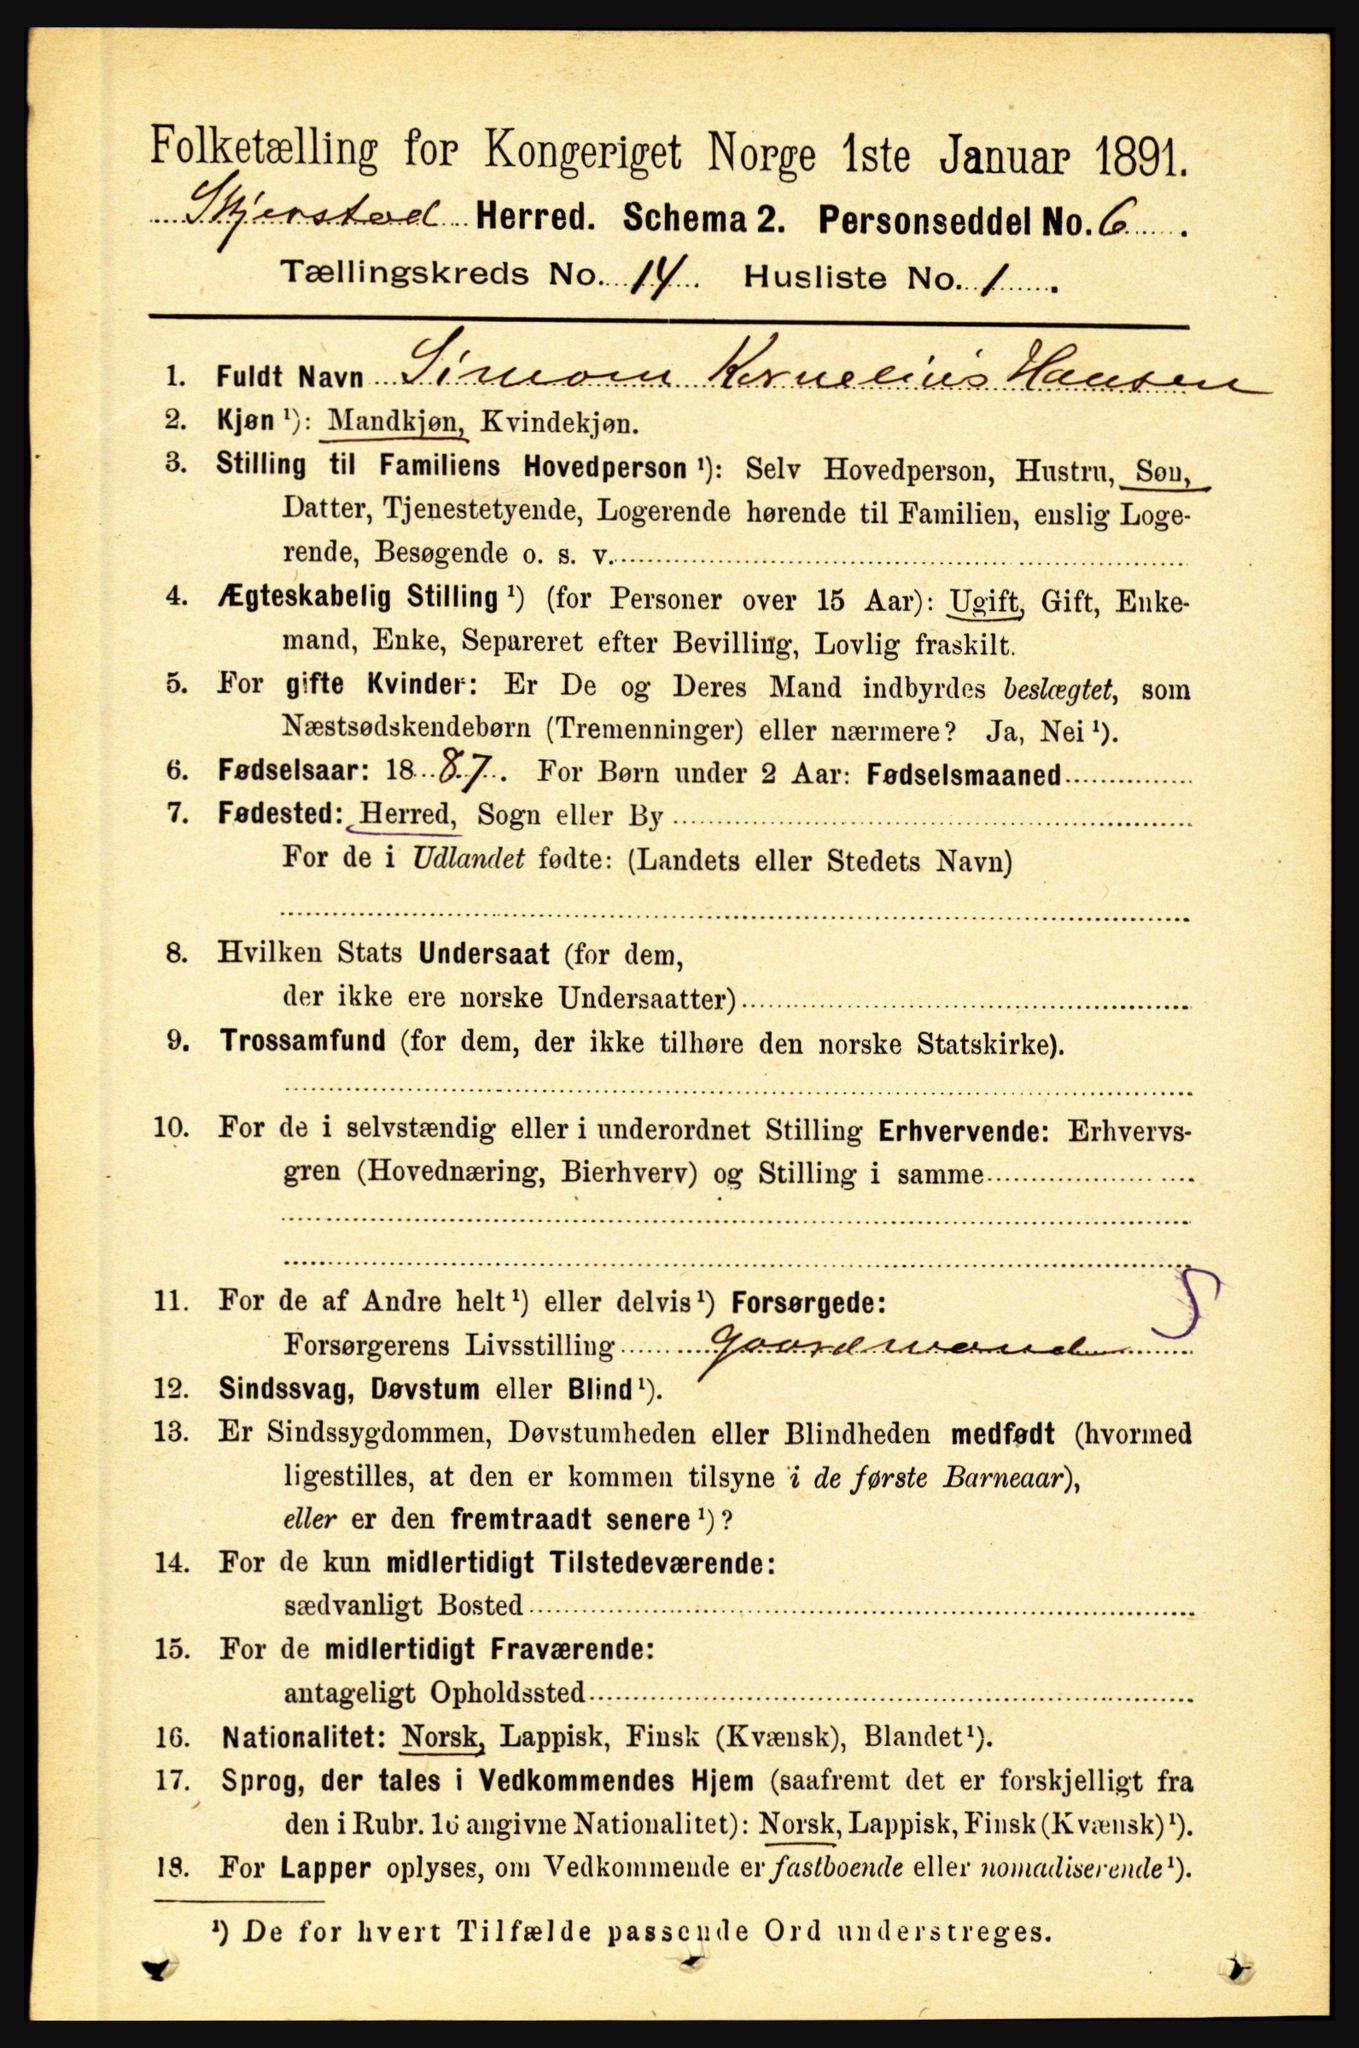 Folketælling for Kongeriget Norge 1ste Januar 1891.
Skjerstad Herred. Schema 2. Personseddel No. 6.
Tællingskreds No. 14. Husliste No. 1.
1. Fuldt Navn Simon Kornelius Hansen
2. Kjøn ¹): Mandkjøn, Kvindekjøn.
3. Stilling til Familiens Hovedperson ¹): Selv Hovedperson, Hustru, Søn,
Datter, Tjenestetyende, Logerende hørende til Familien, enslig Loge-
rende, Besøgende o. s. v.
4. Ægteskabelig Stilling ¹) (for Personer over 15 Aar): Ugift, Gift, Enke-
mand, Enke, Separeret efter Bevilling, Lovlig fraskilt.
5. For gifte Kvinder: Er De og Deres Mand indbyrdes beslægtet, som
Næstsødskendebørn (Tremenninger) eller nærmere? Ja, Nei ¹).
6. Fødselsaar: 1887. For Børn under 2 Aar: Fødselsmaaned
7. Fødested: Herred, Sogn eller By
For de i Udlandet fødte: (Landets eller Stedets Navn)
8. Hvilken Stats Undersaat (for dem,
der ikke ere norske Undersaatter)
9. Trossamfund (for dem, der ikke tilhøre den norske Statskirke).
10. For de i selvstændig eller i underordnet Stilling Erhvervende: Erhvervs-
gren (Hovednæring, Bierhverv) og Stilling i samme
11. For de af Andre helt ¹) eller delvis ¹) Forsørgede: S
Forsørgerens Livsstilling gaardmand
12. Sindssvag, Døvstum eller Blind ¹).
13. Er Sindssygdommen, Døvstumheden eller Blindheden medfødt (hvormed
ligestilles, at den er kommen tilsyne i de første Barneaar),
eller er den fremtraadt senere ¹)?
14. For de kun midlertidigt Tilstedeværende:
sædvanligt Bosted
15. For de midlertidigt Fraværende:
antageligt Opholdssted
16. Nationalitet: Norsk, Lappisk, Finsk (Kvænsk), Blandet ¹).
17. Sprog, der tales i Vedkommendes Hjem (saafremt det er forskjelligt fra
den i Rubr. 16 angivne Nationalitet): Norsk, Lappisk, Finsk (Kvænsk) ¹).
18. For Lapper oplyses, om Vedkommende er fastboende eller nomadiserende ¹).
¹) De for hvert Tilfælde passende Ord understreges.